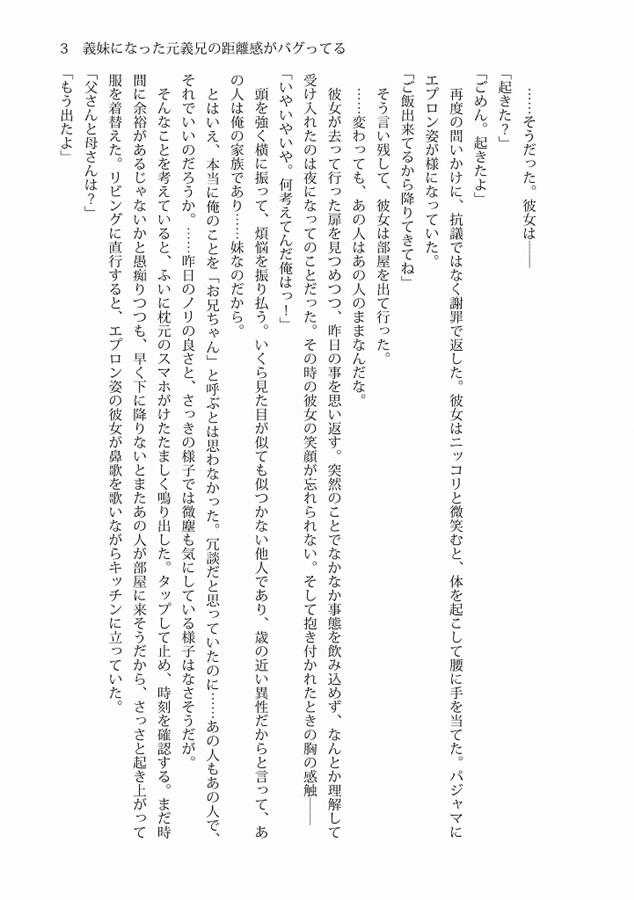 3　義妹になった元義兄の距離感がバグってる
……そうだった。彼女は――
「起きた？」
「ごめん。起きたよ」
再度の問いかけに、抗議ではなく謝罪で返した。彼女はニッコリと微笑むと、体を起こして腰に手を当てた。パジャマに
エプロン姿が様になっていた。
「ご飯出来てるから降りてきてね」
そう言い残して、彼女は部屋を出て行った。
……変わっても、あの人はあの人のままなんだな。
彼女が去って行った扉を見つめつつ、昨日の事を思い返す。突然のことでなかなか事態を飲み込めず、なんとか理解して
受け入れたのは夜になってのことだった。その時の彼女の笑顔が忘れられない。そして抱き付かれたときの胸の感触――
「いやいやいや。何考えてんだ俺はっ！」
頭を強く横に振って、煩悩を振り払う。いくら見た目が似ても似つかない他人であり、歳の近い異性だからと言って、あ
の人は俺の家族であり……妹なのだから。
とはいえ、本当に俺のことを「お兄ちゃん」と呼ぶとは思わなかった。冗談だと思っていたのに……あの人もあの人で、
それでいいのだろうか。……昨日のノリの良さと、さっきの様子では微塵も気にしている様子はなさそうだが。
そんなことを考えていると、ふいに枕元のスマホがけたたましく鳴り出した。タップして止め、時刻を確認する。まだ時
間に余裕があるじゃないかと愚痴りつつも、早く下に降りないとまたあの人が部屋に来そうだから、さっさと起き上がって
服を着替えた。リビングに直行すると、エプロン姿の彼女が鼻歌を歌いながらキッチンに立っていた。
「父さんと母さんは？」
「もう出たよ」